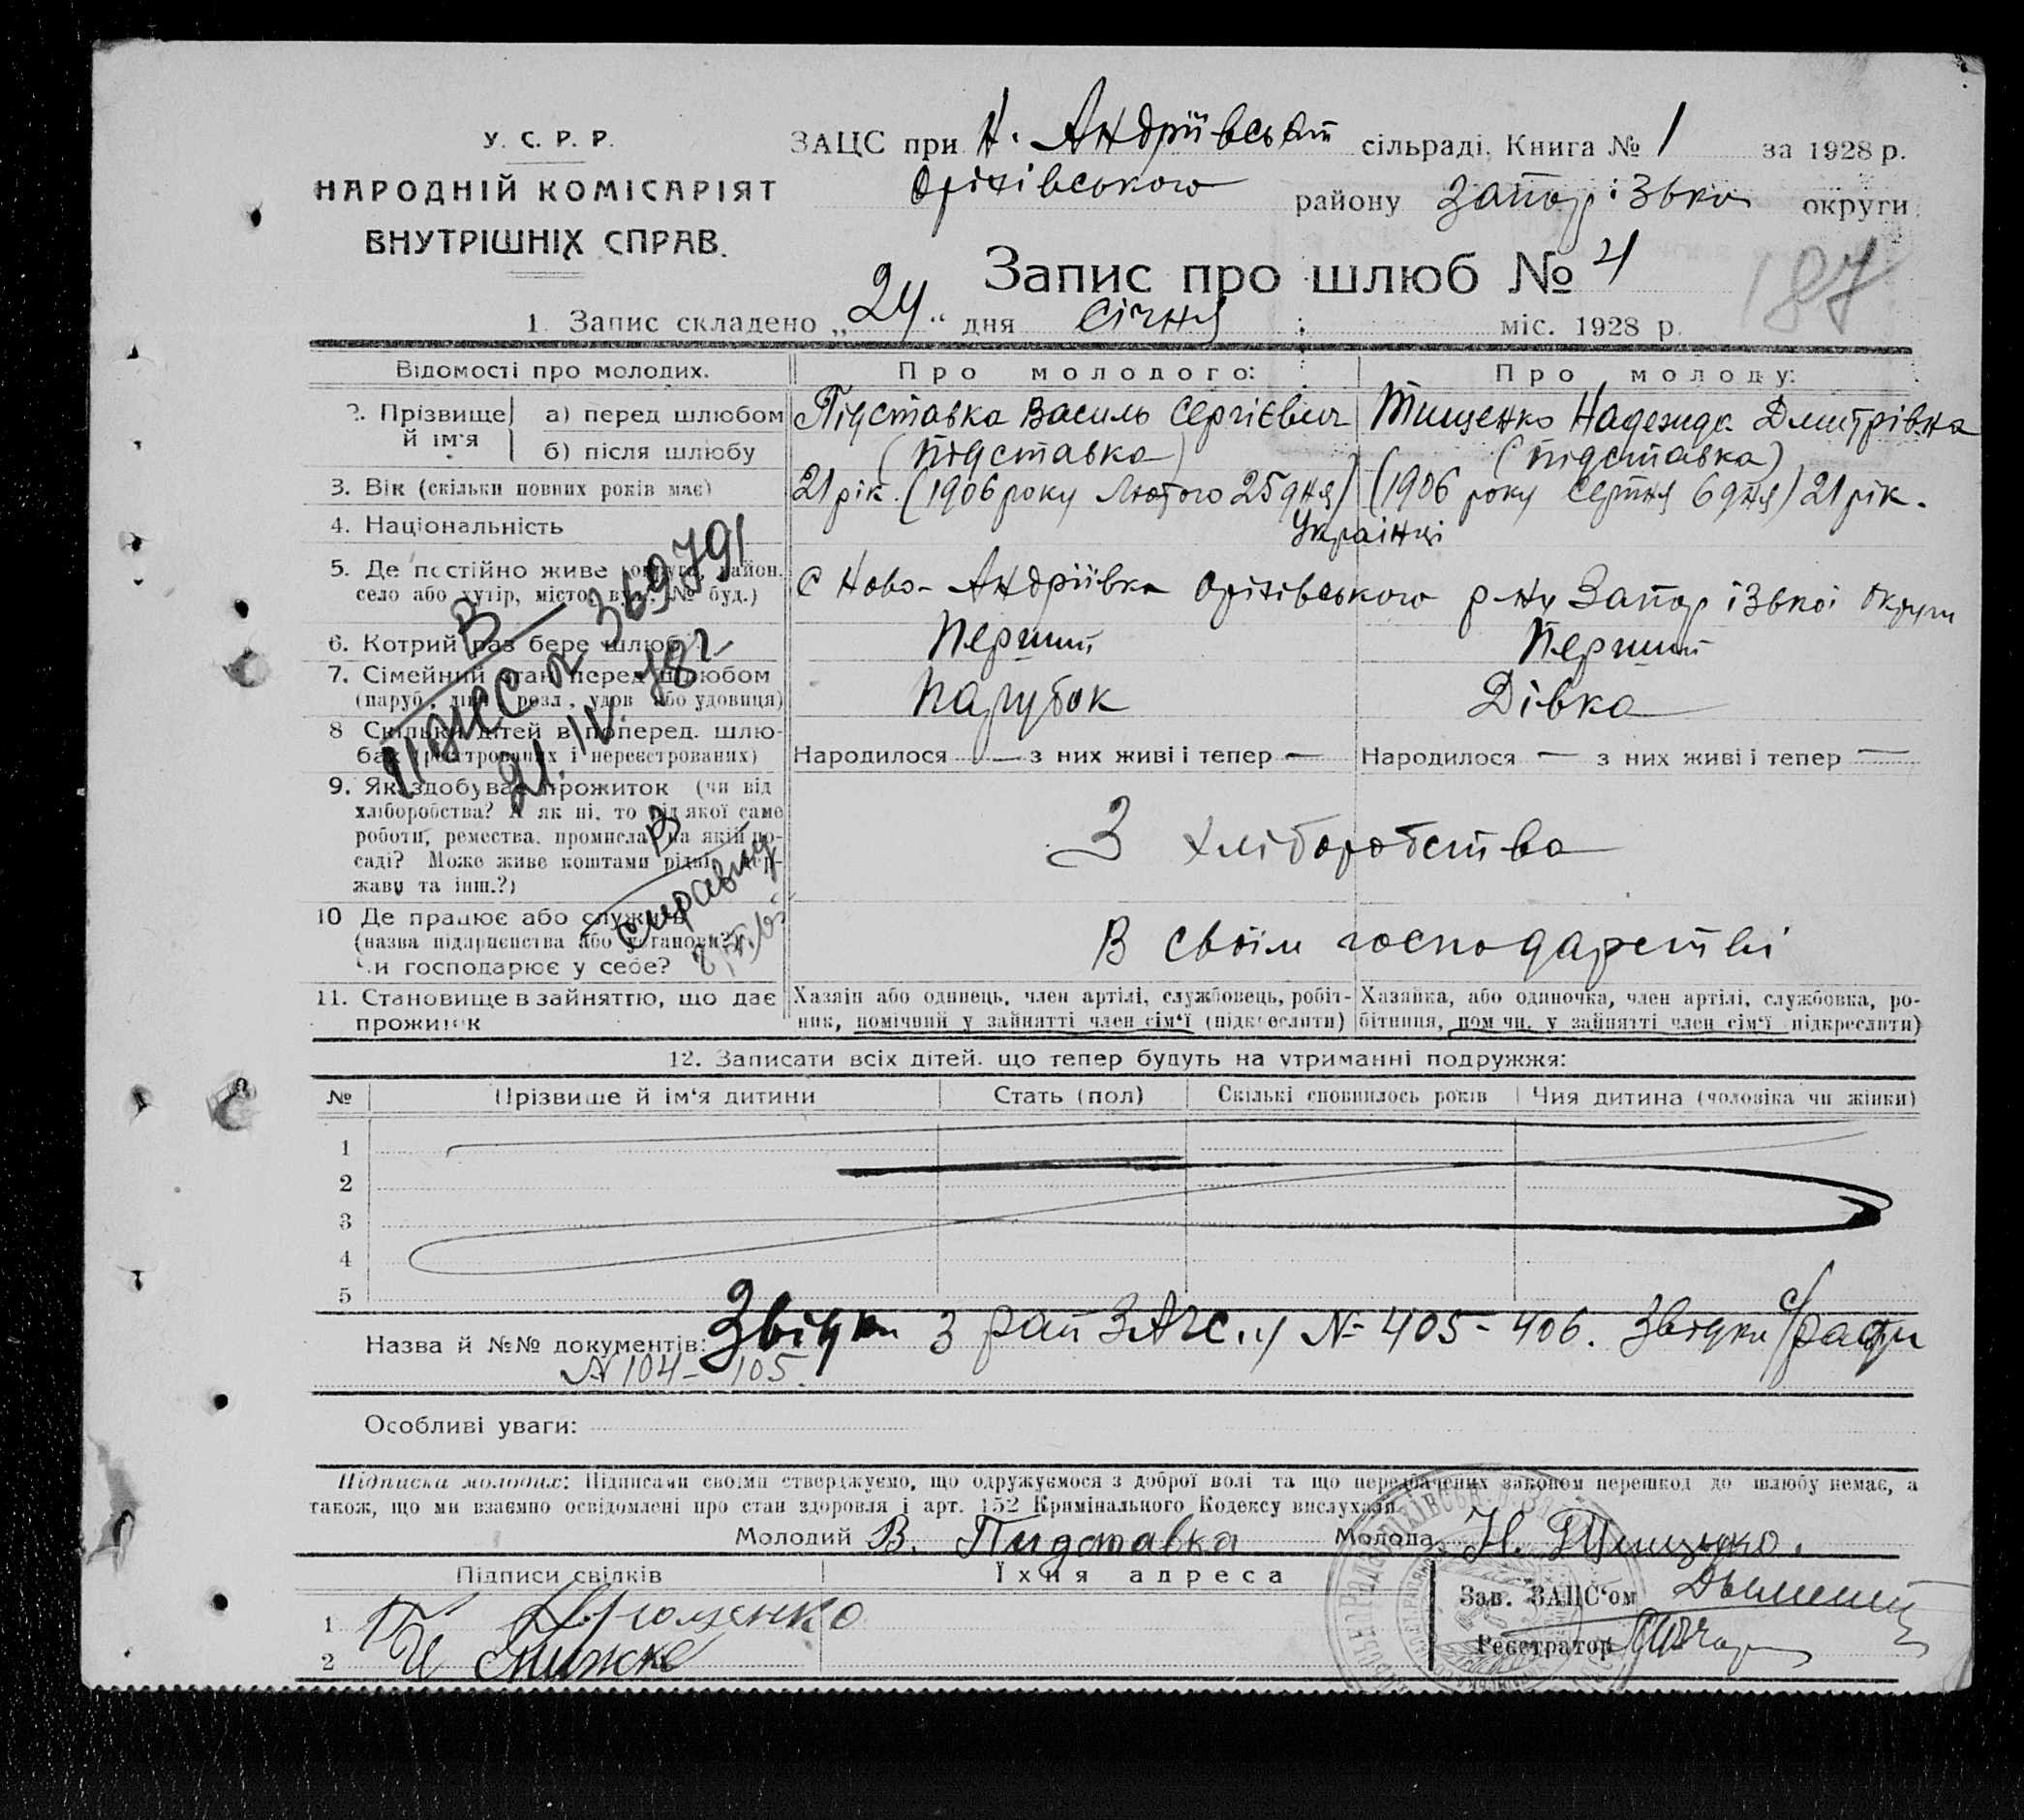 У. С. Р. Р.
НАРОДНІЙ КОМІСАРІЯТ
ВНУТРІШНІХ СПРАВ.
ЗАЦС при Н. Андріївській сільраді. Книга № 1 за 1928 р.
Оріхівського району Запорізької округи
Запис про шлюб № 4
187
1. Запис складено „24“ дня Січня міс. 1928 р.
Відомості про молодих. Про молодого: Про молоду:
2. Прізвище й ім'я а) перед шлюбом Підставка Василь Сергієвич Тищенко Надежда Дмитрівна
б) після шлюбу (Підставка) (Підставка)
3. Вік (скільки повних років має) 21 рік. (1906 року Лютого 25 дня) (1906 року Серпня 6 дня) 21 рік.
4. Національність Українці
5. Де постійно живе (округа, район, село або хутір, місто, вул., № буд.) с Ново-Андріївка Оріхівського р-ну Запорізької Округи
6. Котрий раз бере шлюб Перший Перший
7. Сімейний стан перед шлюбом Парубок Дівка
(паруб., дівч., розл., удов. або удовиця)
8 Скільки дітей в поперед. шлюбах (реєстрованих і нереєстрованих) Народилося — з них живі і тепер — Народилося — з них живі і тепер —
9. Як здобуває прожиток (чи від
хліборобства? А як ні, то від якої саме
роботи, ремества, промисла, на якій по-
саді? Може живе коштами рідні, дер-
жави та інш.?)
З хліборобства
10 Де працює або служить
(назва підприємства або установи?)
Чи господарює у себе?
В своїм господарстві
11. Становище в зайняттю, що дає
прожиток
Хазяїн або одинець, член артілі, службовець, робіт-
ник, помічний у зайнятті член сім'ї (підкреслити)
Хазяйка, або одиночка, член артілі, службовка, ро-
бітниця, пом чн. у зайнятті член сім'ї підкреслити)
№ 369791
21.IV.78г
В справки
12. Записати всіх дітей, що тепер будуть на утриманні подружжя:
№ Прізвище й ім'я дитини Стать (пол) Скількі сповнилось років Чия дитина (чоловіка чи жінки)
1
2
3
4
5
Назва й №№ документів: Звідки з рай ЗАГС.у № 405-406. Звідки с/ради
№ 104-105.
Особливі уваги:
Підписка молодих: Підписами своїми стверджуємо, що одружуємося з доброї волі та що передбачених законом перешкод до шлюбу немає, а
також, що ми взаємно освідомлені про стан здоровля і арт. 152 Кримінального Кодексу вислухали.
Молодий В. Пидставка Молода Н. Тищенко.
Підписи свідків Їхня адреса
Зав. ЗАЦС'ом
1
Реєстратор
2